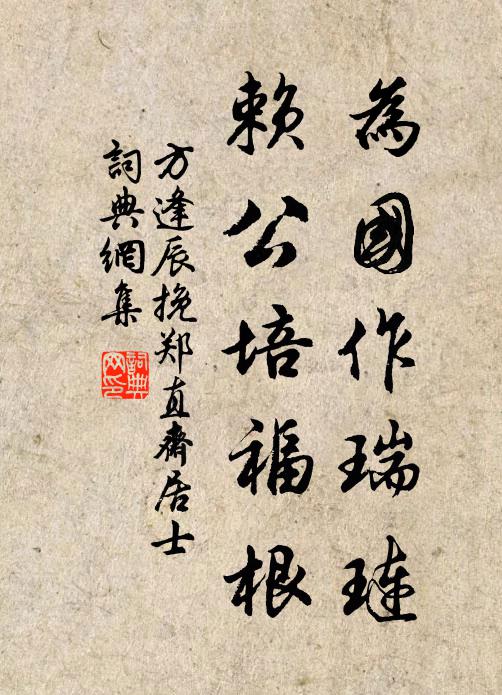 為國作瑞璉
賴公培福根
方逢辰挽郑直斋居士
詞典網集
詞典网印